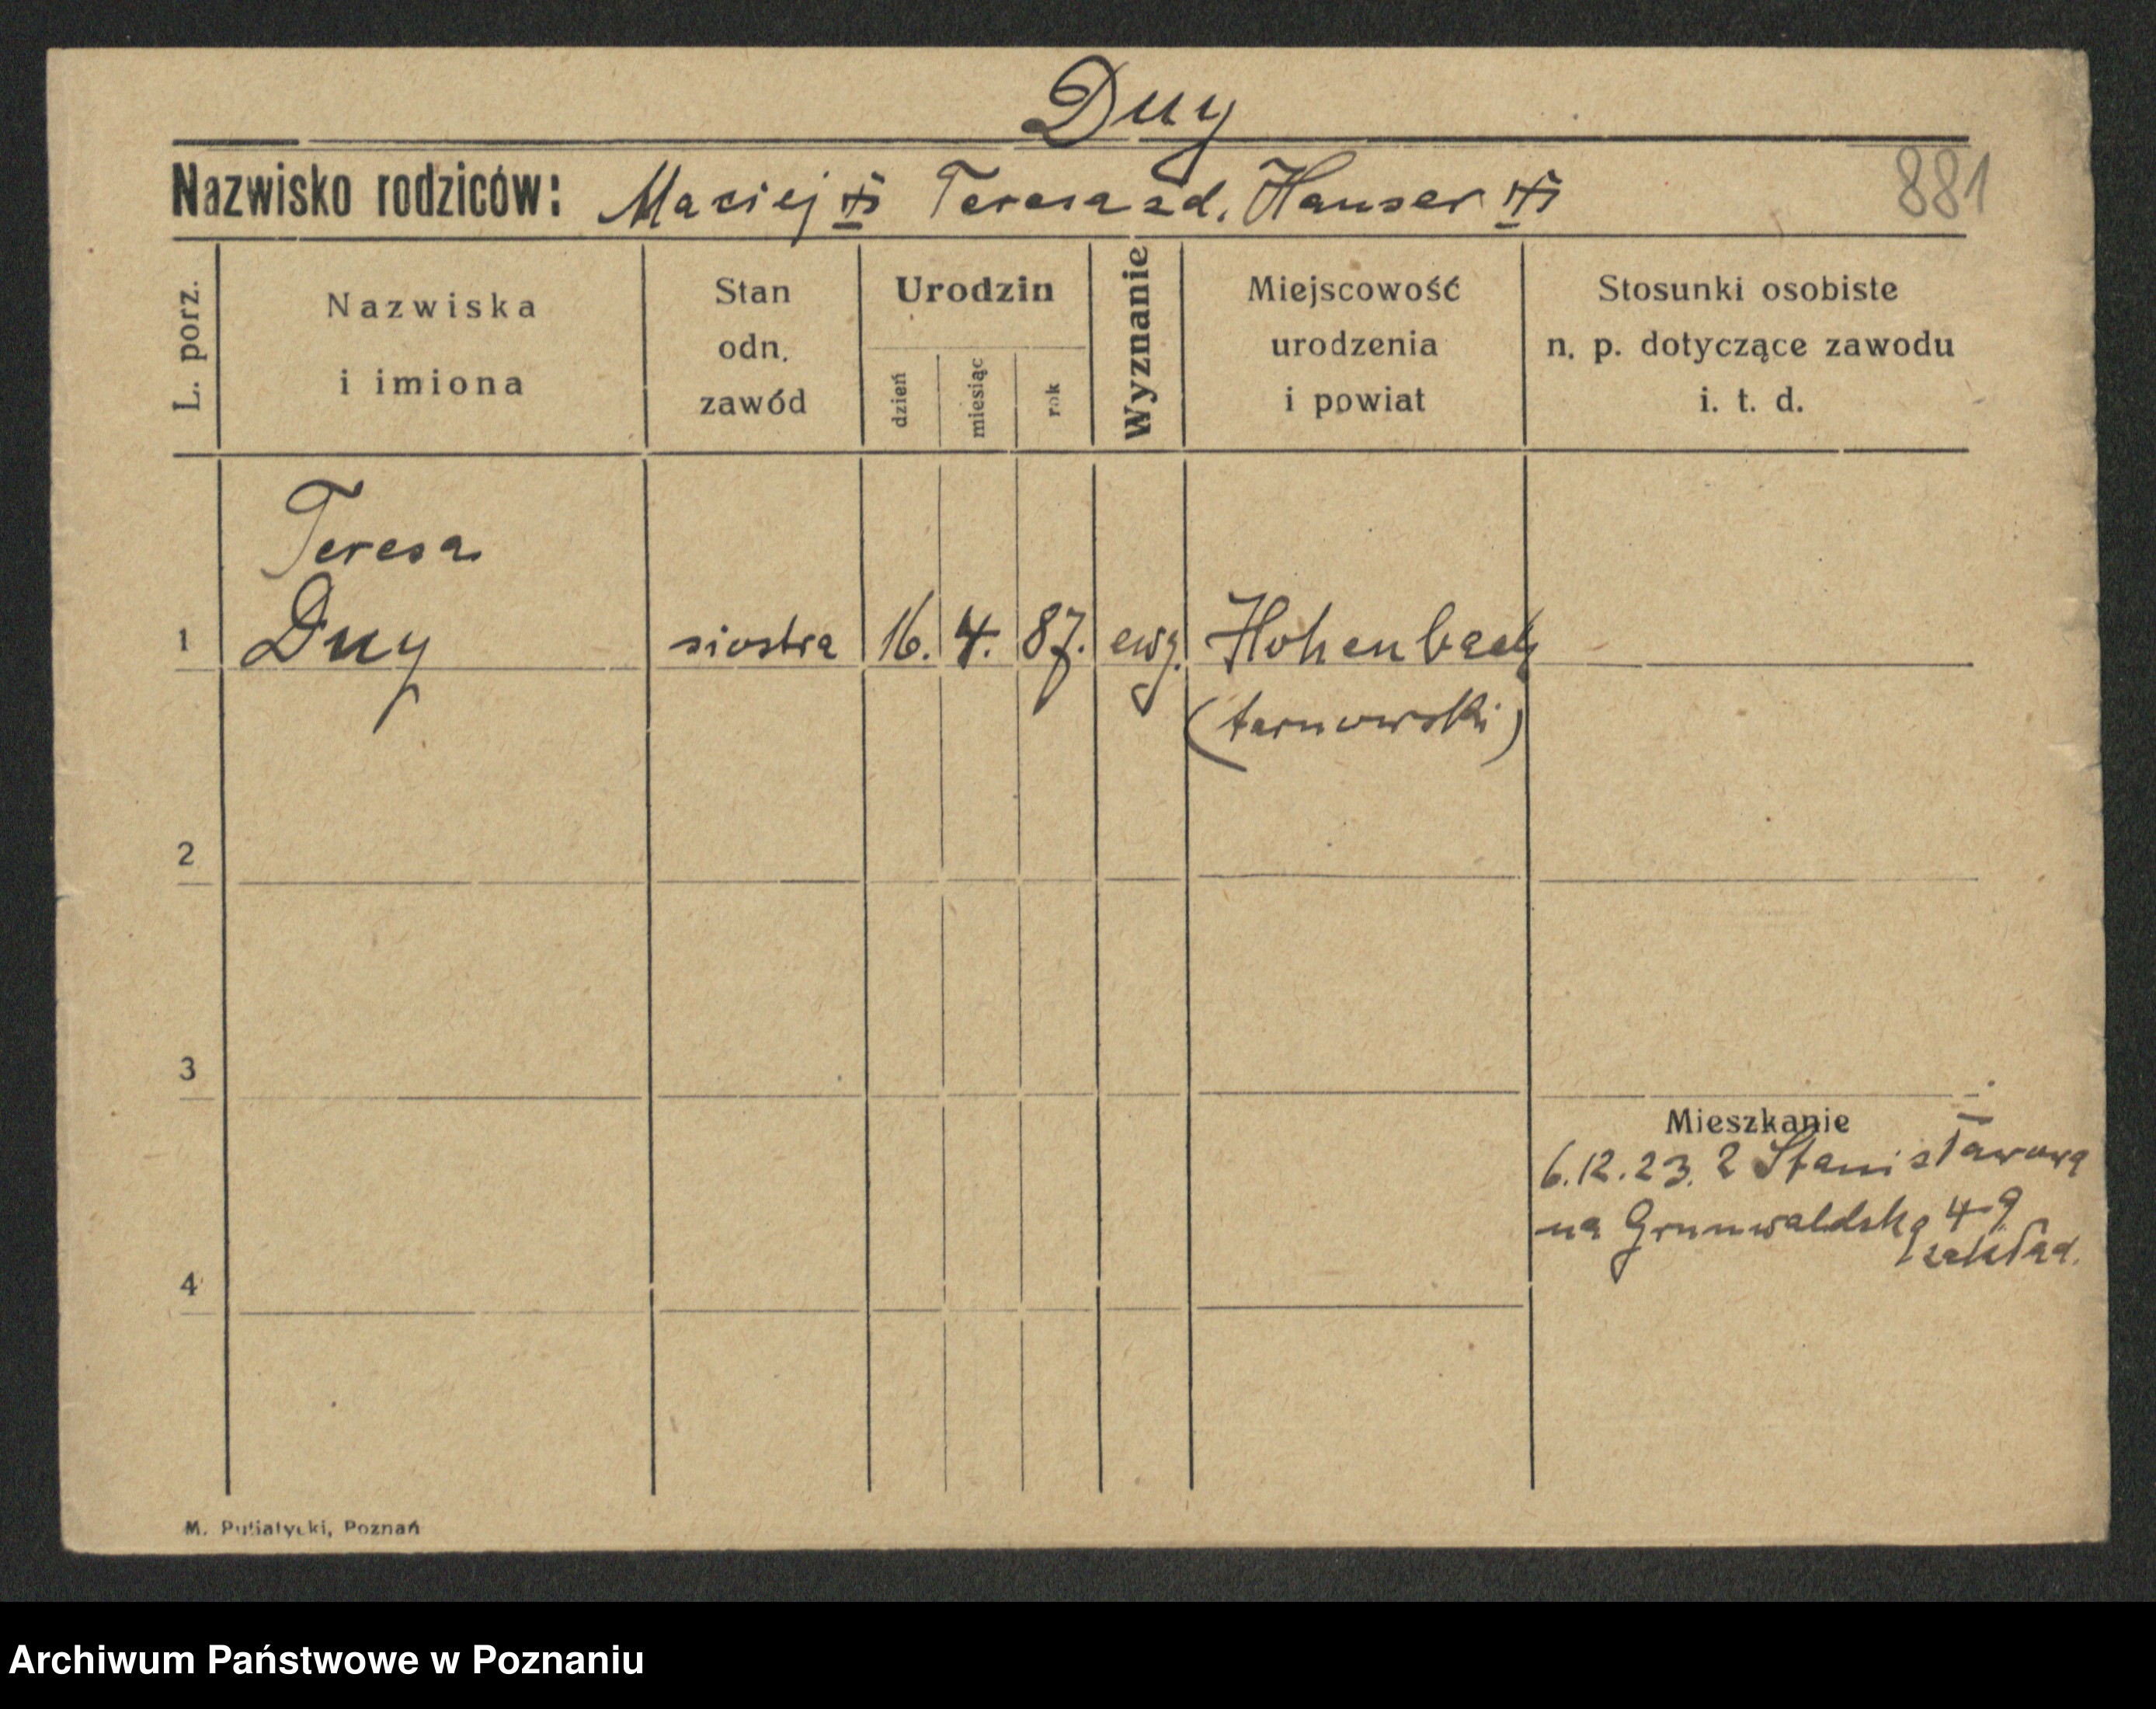 Duy
Nazwisko rodziców: Maciej Teresa zd. Hauser
881
L. porz.
Nazwiska
i imiona
Stan
odn.
zawód
Urodzin
dzień
miesiąc
rok
Wyznanie
Miejscowość
urodzenia
i powiat
Stosunki osobiste
n. p. dotyczące zawodu
i. t. d.
Teresa
1 Duy siostra 16. 4. 87. ewg. Hohenbach
(tarnowski)
2
3
Mieszkanie
6.12.23. z Stanisławową
na Grunwaldską 49
zakład.
4
M. Putiatycki, Poznań
Archiwum Państwowe w Poznaniu